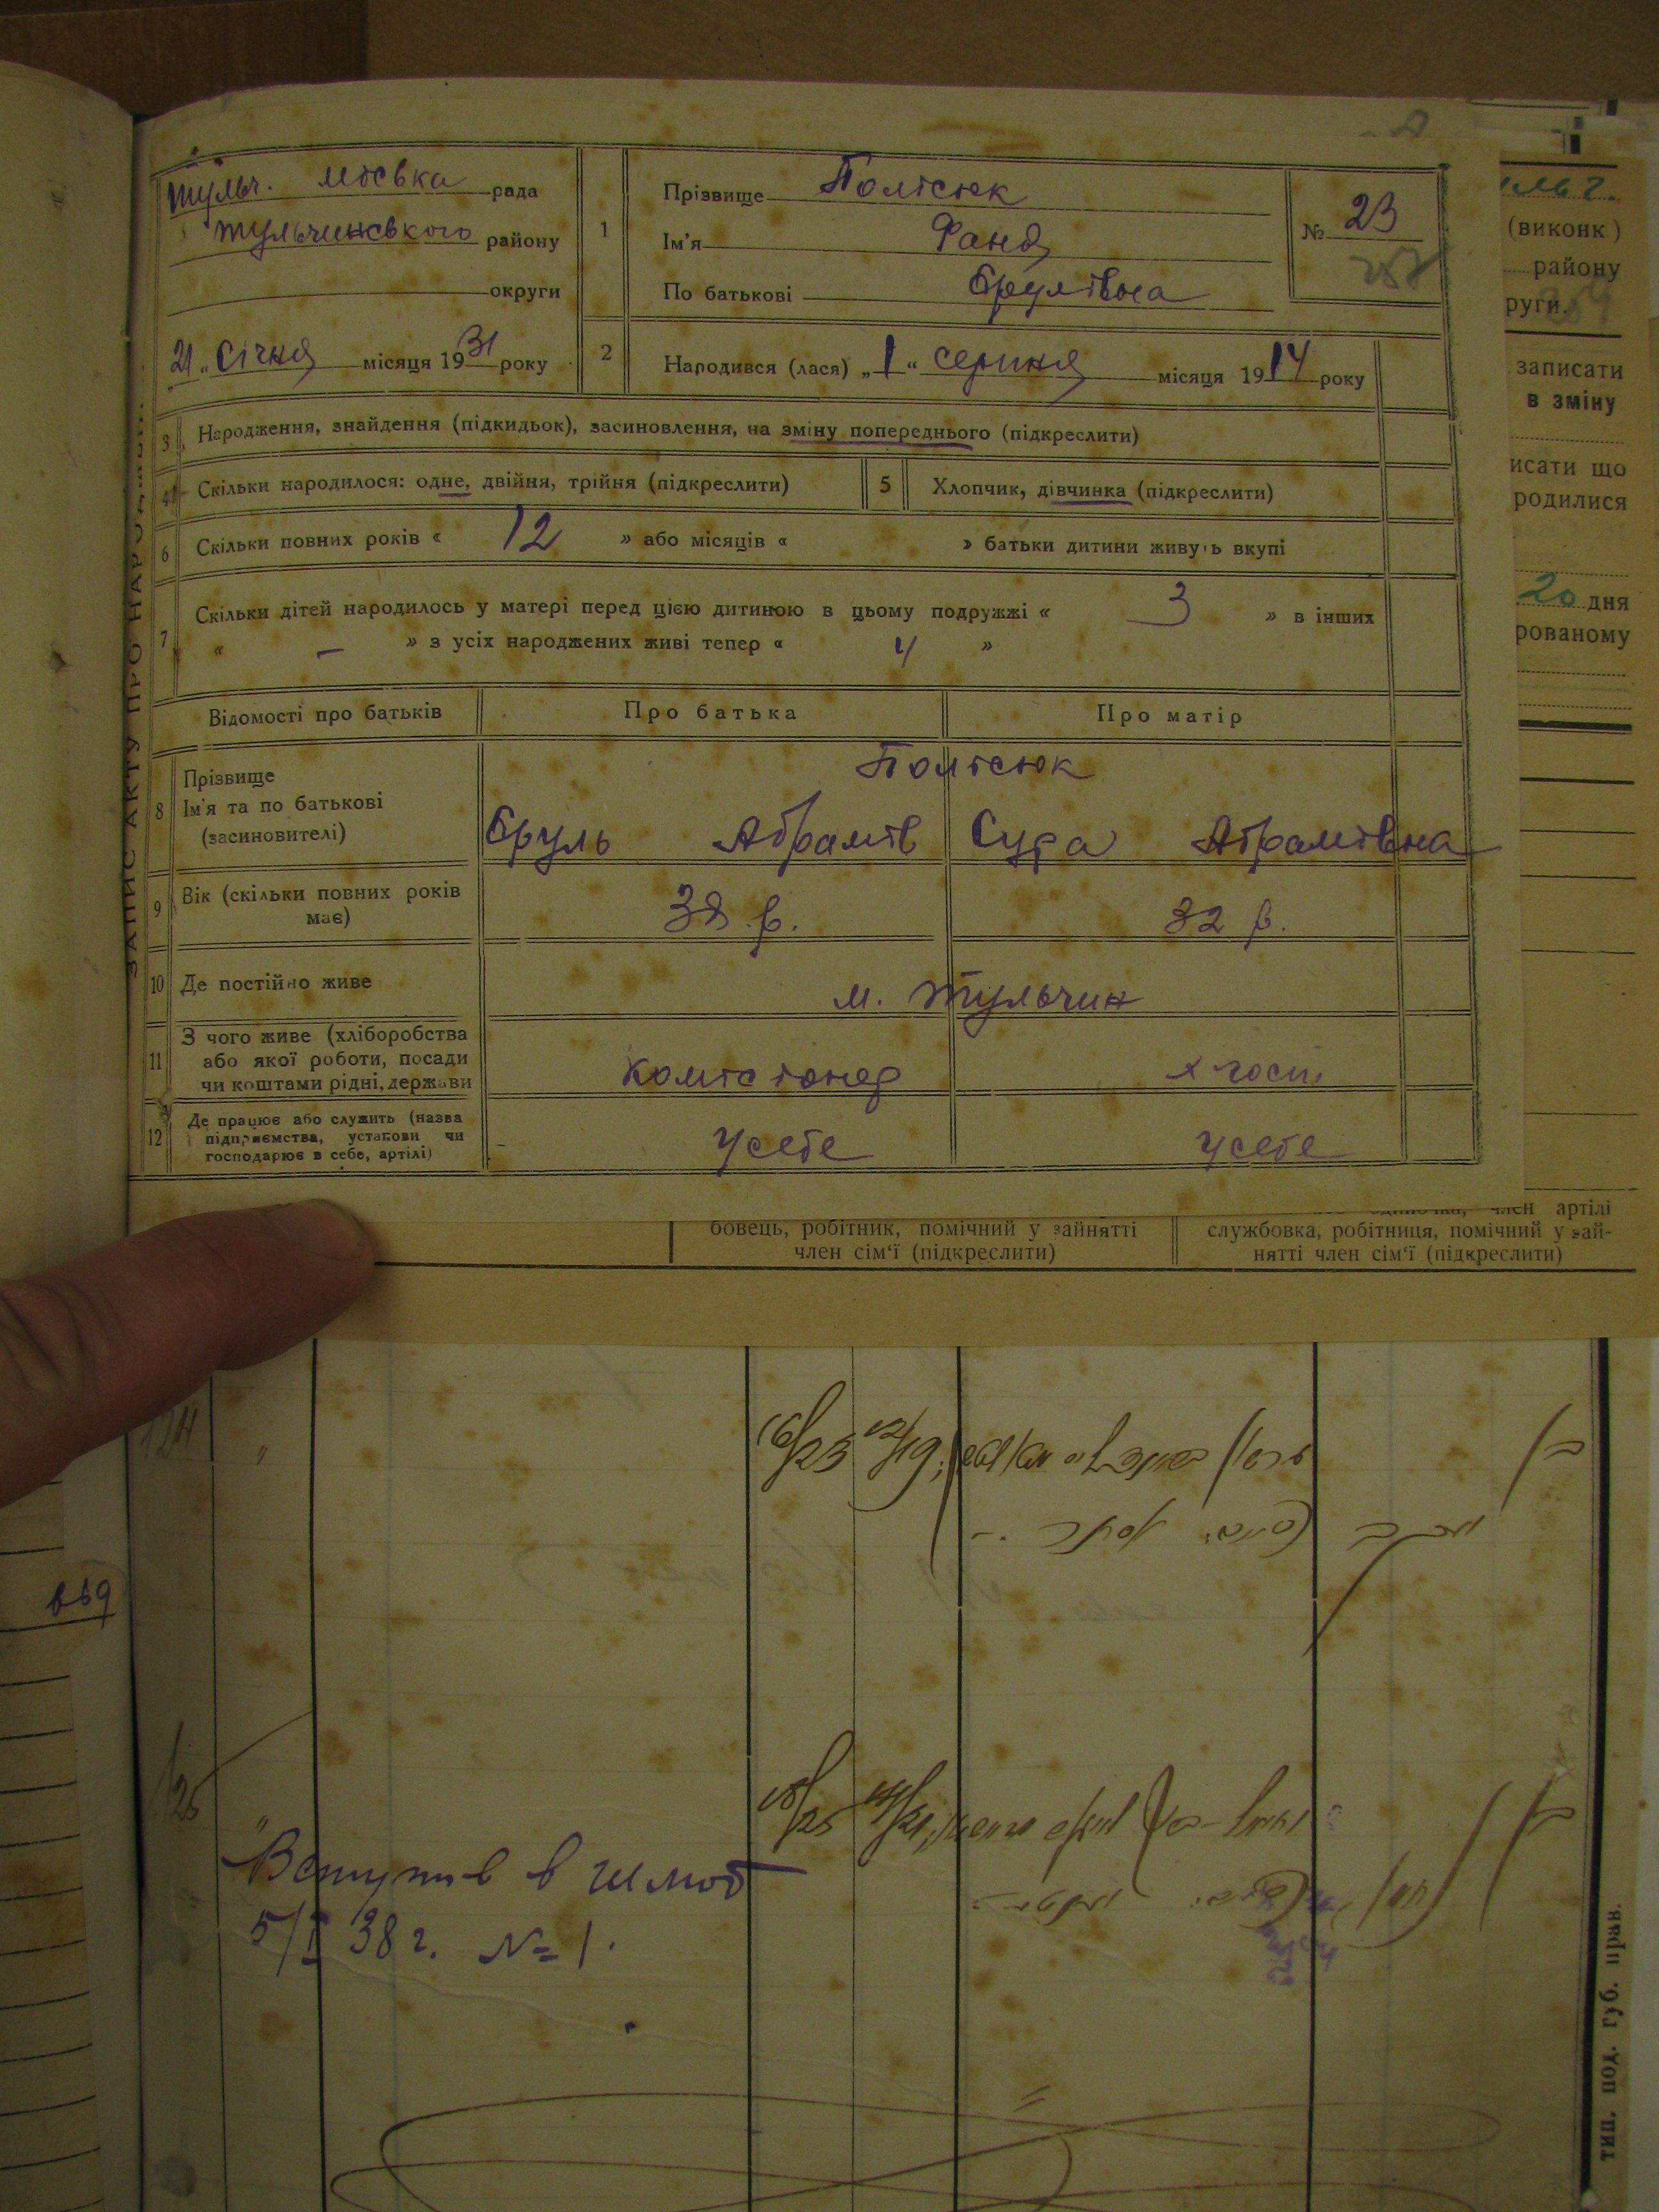 Тульч. міська рада
Тульчинського району
округи
21 „ Січня місяця 1931 року
1
Прізвище Полісюк
Ім'я Фаня
По батькові Срулівна
№ 23
2
Народився (лася) „ 1 “ серпня місяця 1914 року
ЗАПИС АКТУ ПРО НАРОД
3 Народження, знайдення (підкидьок), засиновлення, на зміну попереднього (підкреслити)
4 Скільки народилося: одне, двійня, трійня (підкреслити)
5 Хлопчик, дівчинка (підкреслити)
6 Скільки повних років « 12 » або місяців « » батьки дитини живуть вкупі
7 Скільки дітей народилось у матері перед цією дитиною в цьому подружжі « 3 » в інших
« – » з усіх народжених живі тепер « 4 »
Відомості про батьків Про батька Про матір
8 Прізвище
Ім'я та по батькові
(засиновителі)
Полісюк
Сруль Абрамів Сура Абрамівна
9 Вік (скільки повних років
має)
38 р. 32 р.
10 Де постійно живе
м. Тульчин
11 З чого живе (хліборобства
або якої роботи, посади
чи коштами рідні, держави
комісіонер х госп.
12 Де працює або служить (назва
підприємства, установи чи
господарює в себе, артілі)
У себе У себе
(виконк)
району
руги.
записати
в зміну
исати що
родилися
20 дня
рованому
член артілі
бовець, робітник, помічний у зайнятті
член сім'ї (підкреслити)
службовка, робітниця, помічний у зай-
нятті член сім'ї (підкреслити)
124
16/23
18/25
Вступив в шлюб
5/I 38 г. № 1.
тип. под. губ. прав.